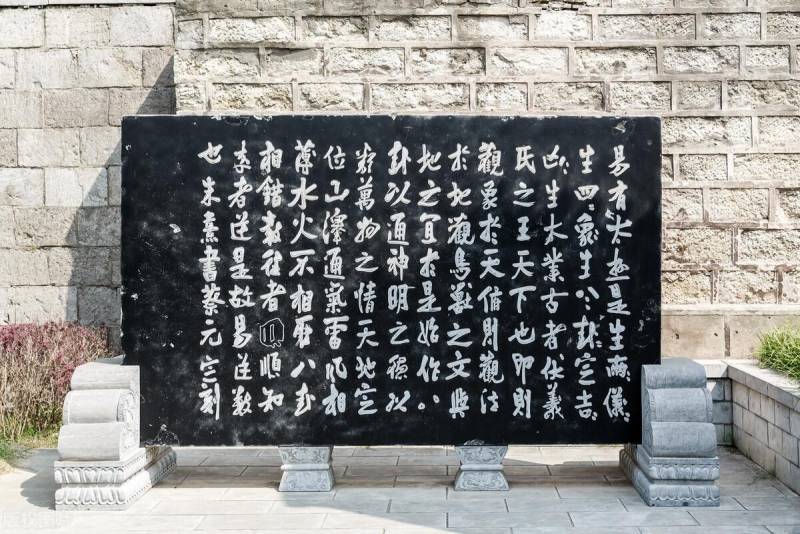 易有太極是生兩〻儀〻
生四〻象〻生八〻卦〻定吉〻
凶〻生大業古者伏羲
氏之王天下也仰則
觀象於天俯則觀法
於地觀鳥獸之文與
地之宜於是始作八
卦以通神明之德以
類萬物之情天地定
位山澤通氣雷風相
薄水火不相射八卦
相錯數往者順知
來者逆是故易逆數
也朱熹書蔡元定刻